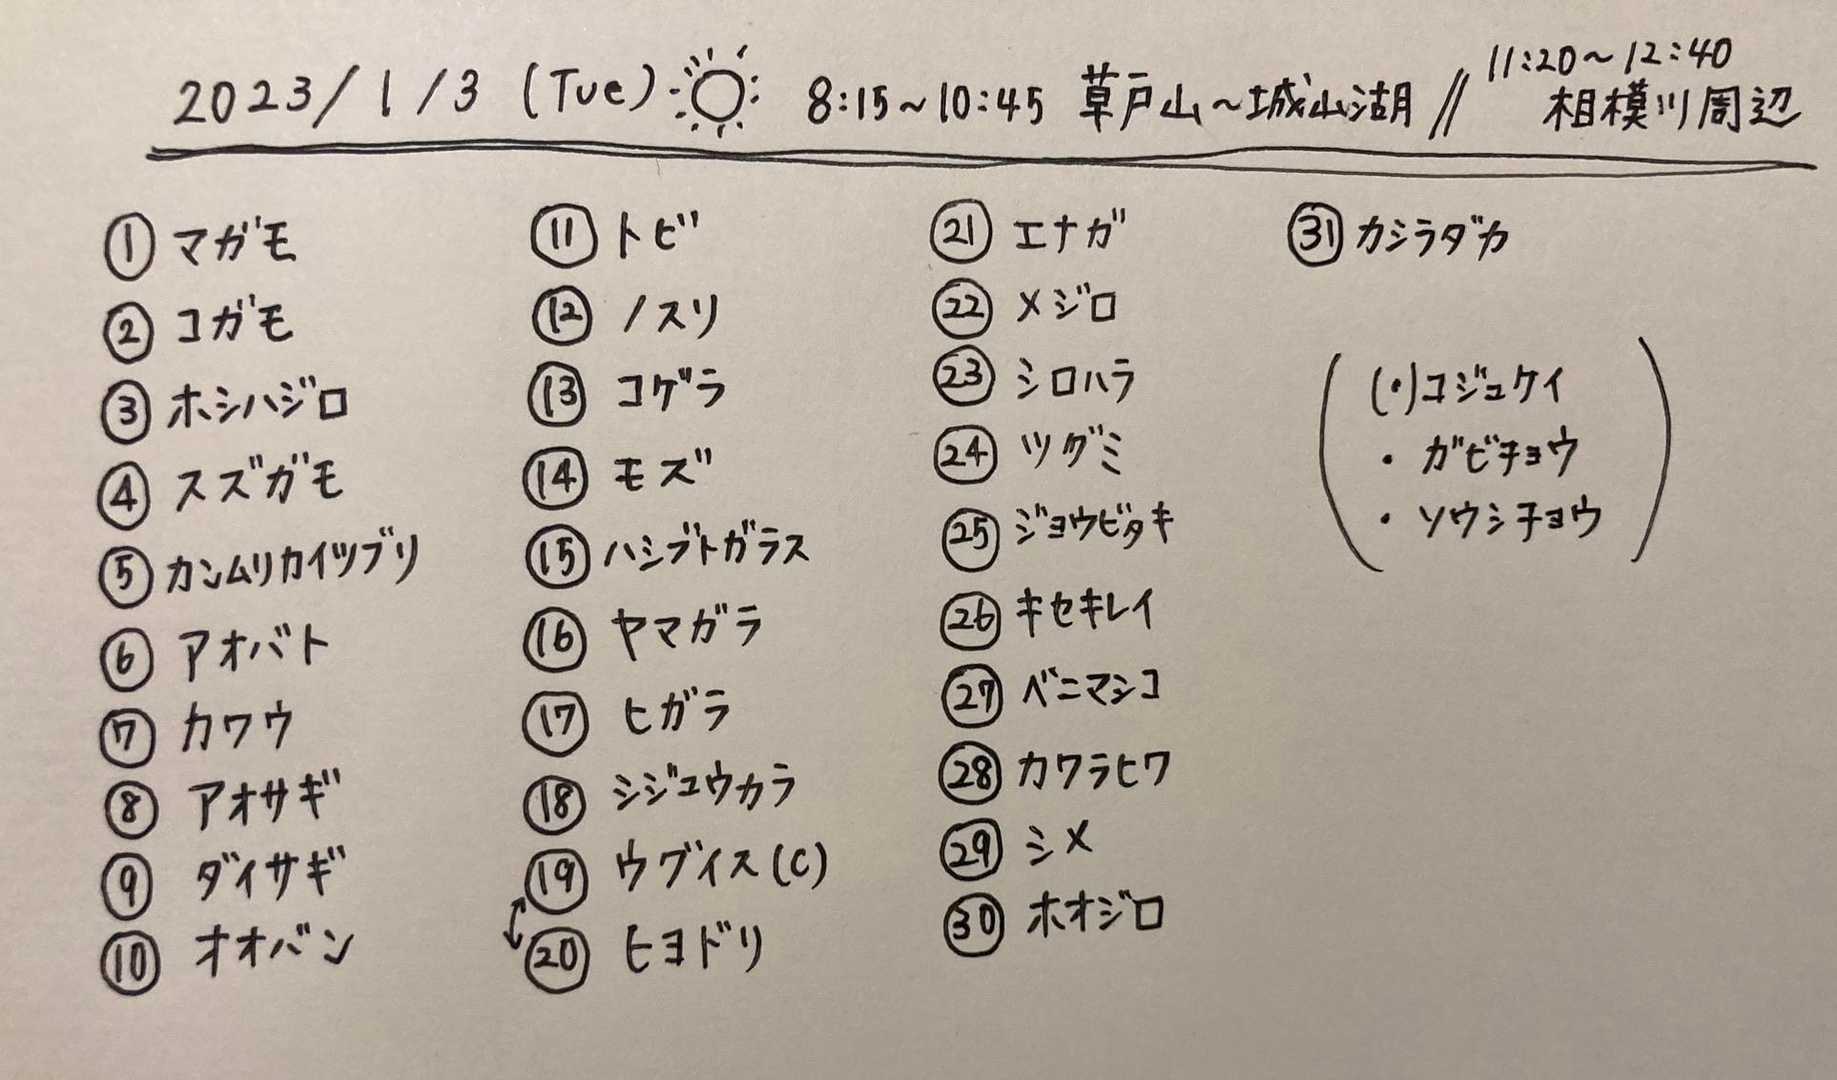 2023/1/3 (Tue) 8:15~10:45 草戸山~城山湖 // 11:20~12:40 相模川周辺
① マガモ
② コガモ
③ ホシハジロ
④ スズガモ
⑤ カンムリカイツブリ
⑥ アオバト
⑦ カワウ
⑧ アオサギ
⑨ ダイサギ
⑩ オオバン
⑪ トビ
⑫ ノスリ
⑬ コゲラ
⑭ モズ
⑮ ハシブトガラス
⑯ ヤマガラ
⑰ ヒガラ
⑱ シジュウカラ
⑲ ウグイス(C)
⑳ ヒヨドリ
㉑ エナガ
㉒ メジロ
㉓ シロハラ
㉔ ツグミ
㉕ ジョウビタキ
㉖ キセキレイ
㉗ ベニマシコ
㉘ カワラヒワ
㉙ シメ
㉚ ホオジロ
㉛ カシラダカ
(・)コジュケイ
・ガビチョウ
・ソウシチョウ